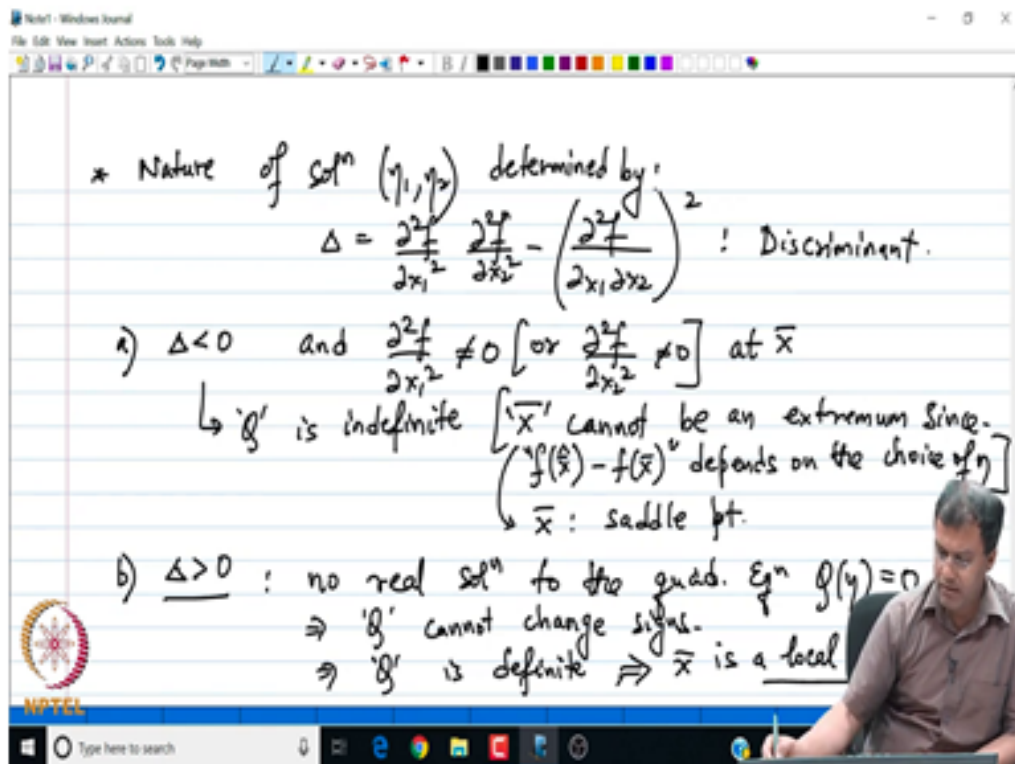 Note1 - Windows Journal
File Edit View Insert Actions Tools Help
Page Width
* Nature of solⁿ (η₁, η₂) determined by:
Δ = ∂²f/∂x₁² ∂²f/∂x₂² - (∂²f/∂x₁∂x₂)² : Discriminant.
a) Δ<0 and ∂²f/∂x₁² ≠0 [or ∂²f/∂x₂² ≠0] at x̄
↳ 'Q' is indefinite ['x̄' cannot be an extremum since
("f(x̂) - f(x̄)" depends on the choice of η]
↳ x̄ : saddle pt.
b) Δ>0 : no real solⁿ to the quad. Eqⁿ Q(y)=0
⇒ 'Q' cannot change signs.
⇒ 'Q' is definite ⇒ x̄ is a local
NPTEL
Type here to search